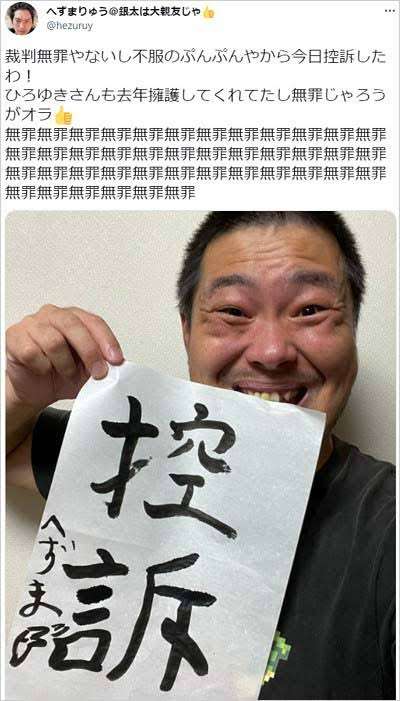 へずまりゅう@銀太は大親友じゃ👍
@hezuruy
裁判無罪やないし不服のぷんぷんやから今日控訴した
わ！
ひろゆきさんも去年擁護してくれてたし無罪じゃろう
がオラ👍
無罪無罪無罪無罪無罪無罪無罪無罪無罪無罪無罪無罪
無罪無罪無罪無罪無罪無罪無罪無罪無罪無罪無罪無罪
無罪無罪無罪無罪無罪無罪無罪無罪無罪無罪無罪無罪
無罪無罪無罪無罪無罪無罪
控訴
へずま